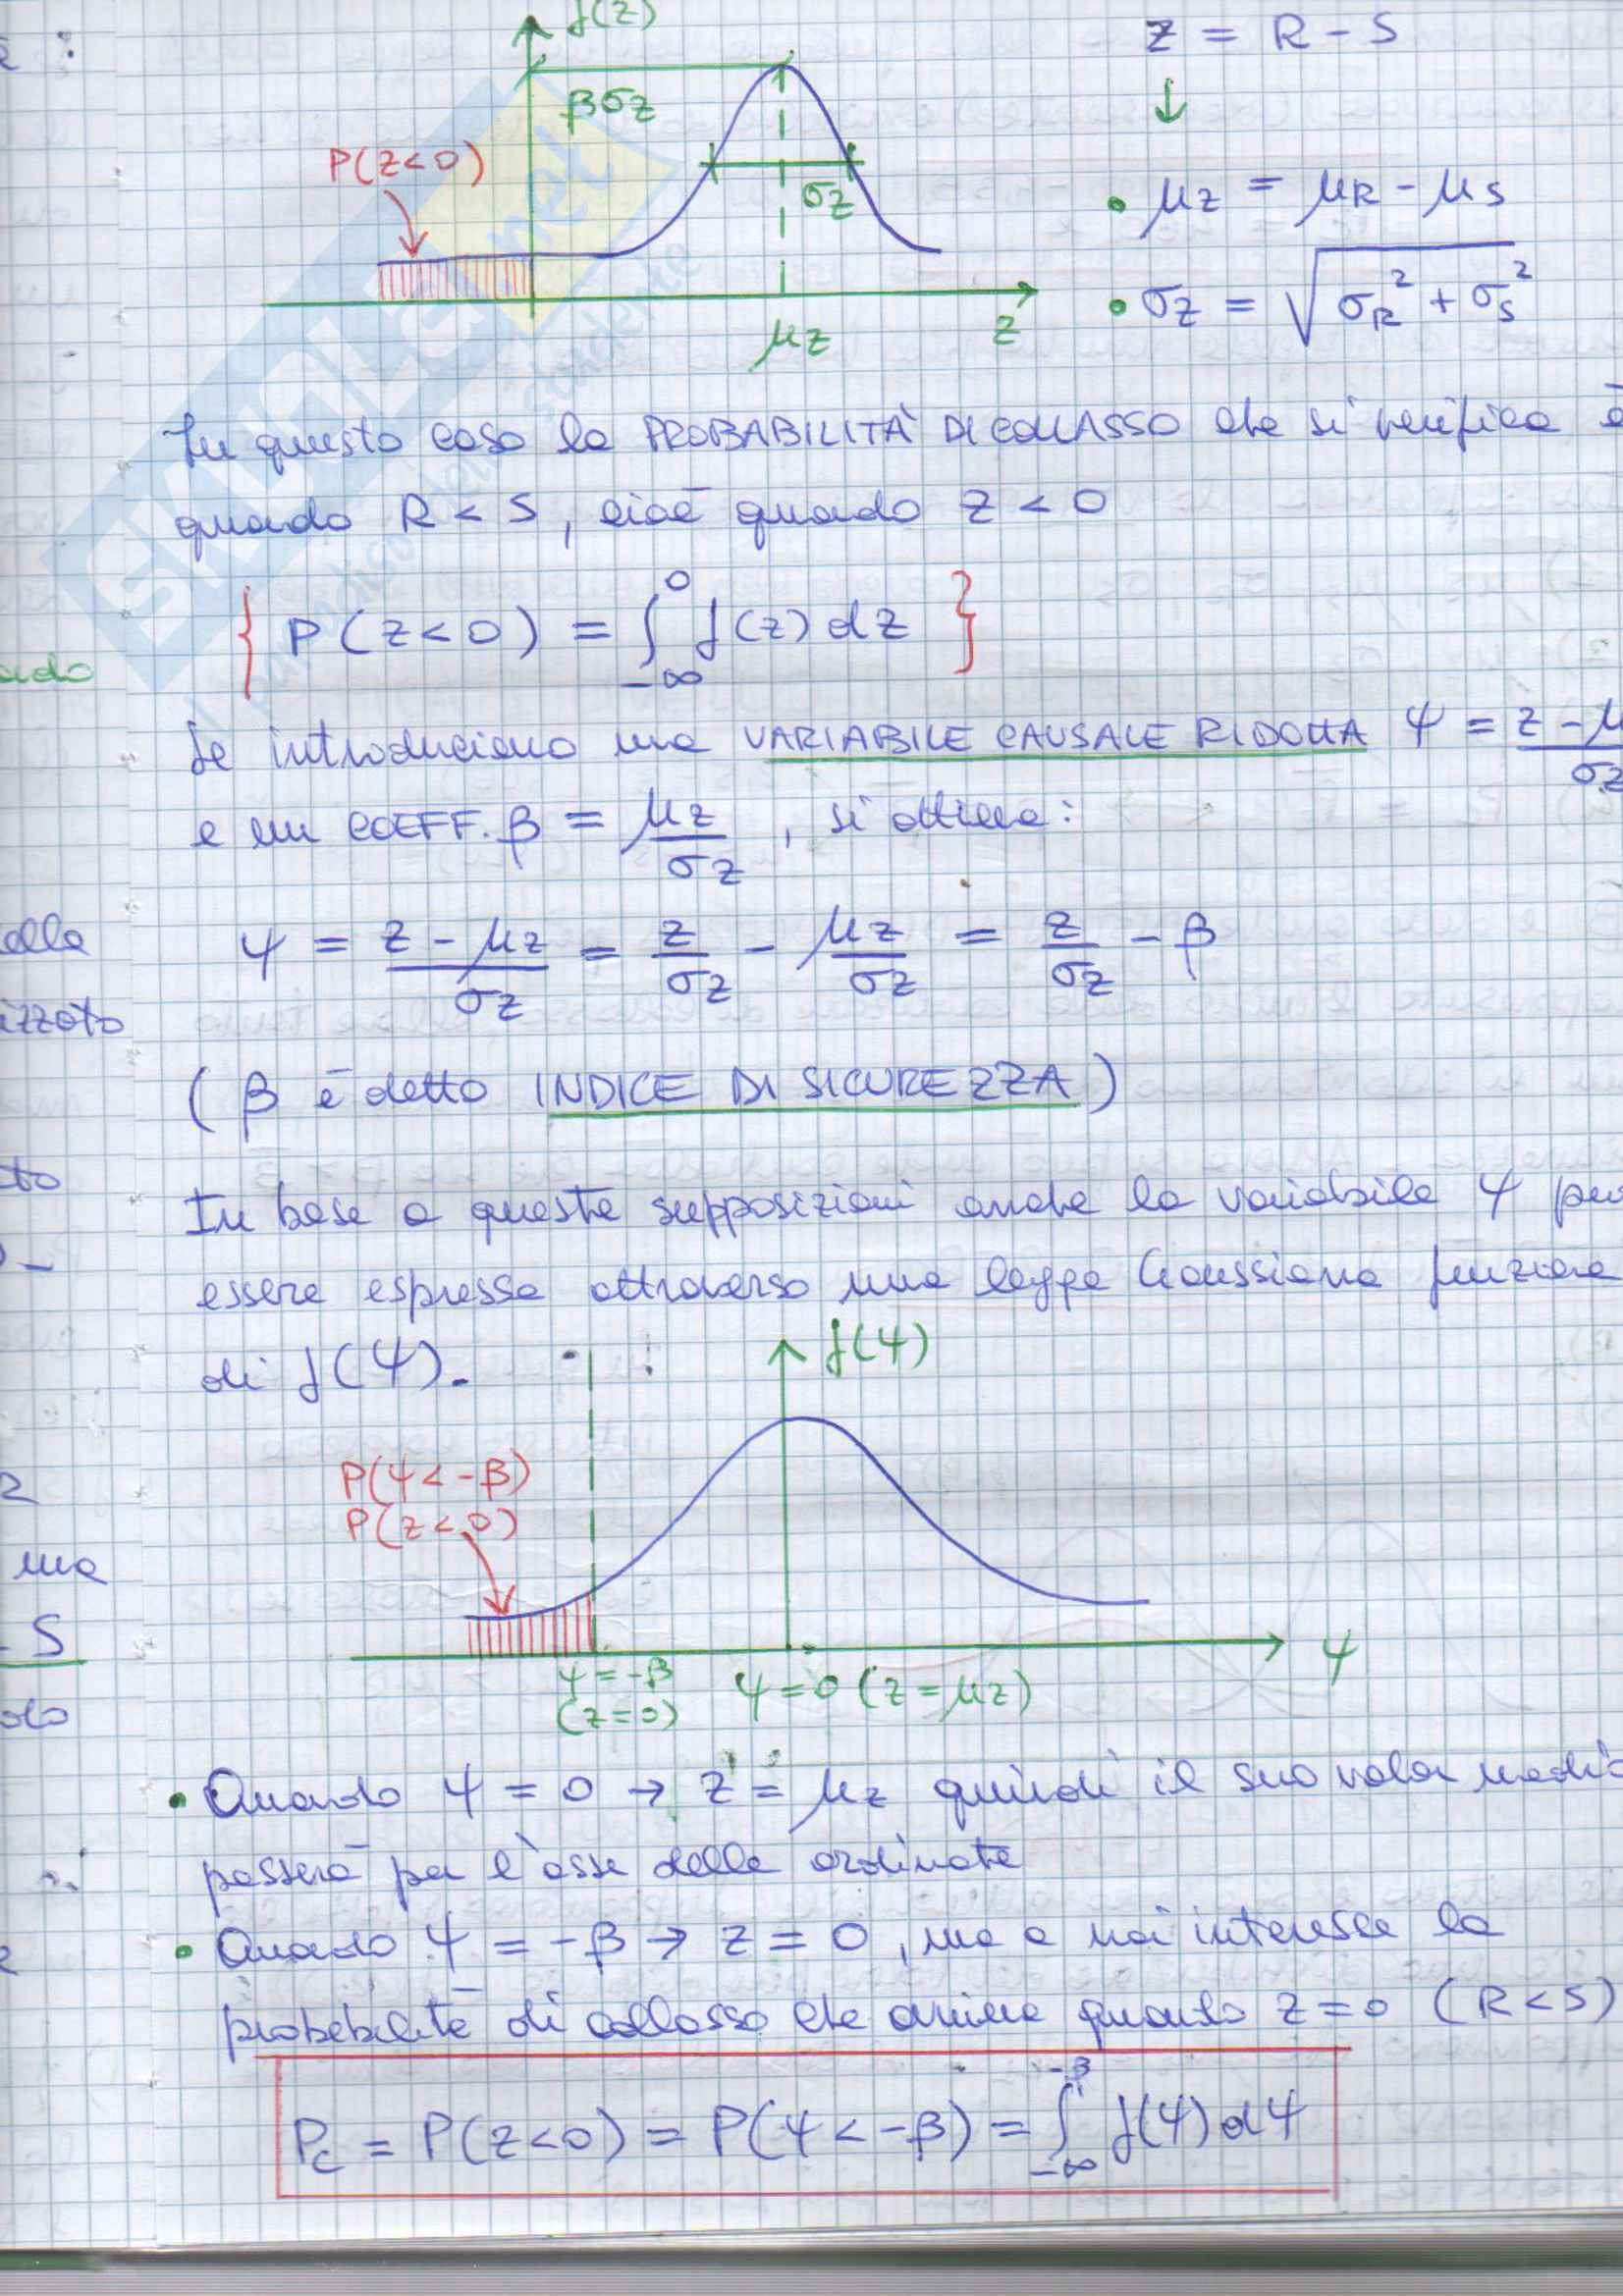 f(z)
z = R - S
βσz
↓
P(z<0)
σz
• μz = μR - μS
• σz = √(σR² + σS²)
μz
z
In questo caso la PROBABILITÀ DI COLLASSO che si verifica è
quando R < S, cioè quando z < 0
{ P(z<0) = ∫_{-∞}^{0} f(z) dz }
ado
Se introduciamo una VARIABILE CAUSALE RIDOTTA Ψ = (z - μ)/σz
e un COEFF. β = μz/σz , si ottiene:
della
Ψ = (z - μz)/σz = z/σz - μz/σz = z/σz - β
izzato
( β è detto INDICE DI SICUREZZA )
to
In base a queste supposizioni anche la variabile Ψ può
essere espressa attraverso una legge Gaussiana funzione
di f(Ψ).
f(Ψ)
P(Ψ<-β)
P(z<0)
2
una
- S
Ψ
Ψ=-β
(z=0)
Ψ=0 (z=μz)
olo
• Quando Ψ = 0 → z = μz quindi il suo valor medio
passerà per l'asse delle ordinate
• Quando Ψ = -β → z = 0, ma a noi interessa la
probabilità di collasso che avviene quando z=0 (R<S)
Pc = P(z<0) = P(Ψ<-β) = ∫_{-∞}^{-β} f(Ψ) dΨ
SKUOLA.net